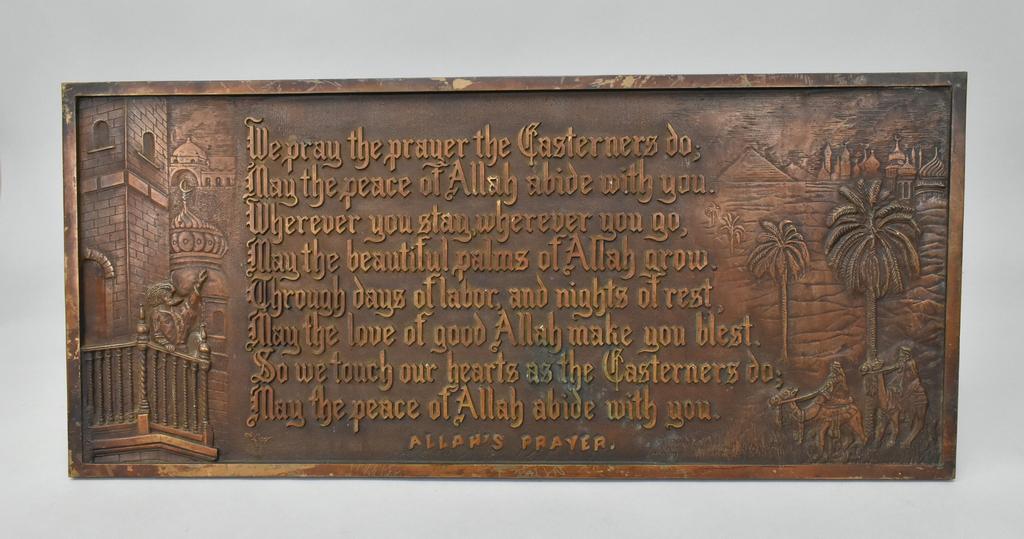 We pray the prayer the Easterners do;
May the peace of Allah abide with you.
Wherever you stay, wherever you go,
May the beautiful palms of Allah grow.
Through days of labor, and nights of rest,
May the love of good Allah make you blest.
So we touch our hearts as the Easterners do;
May the peace of Allah abide with you.
ALLAH'S PRAYER.